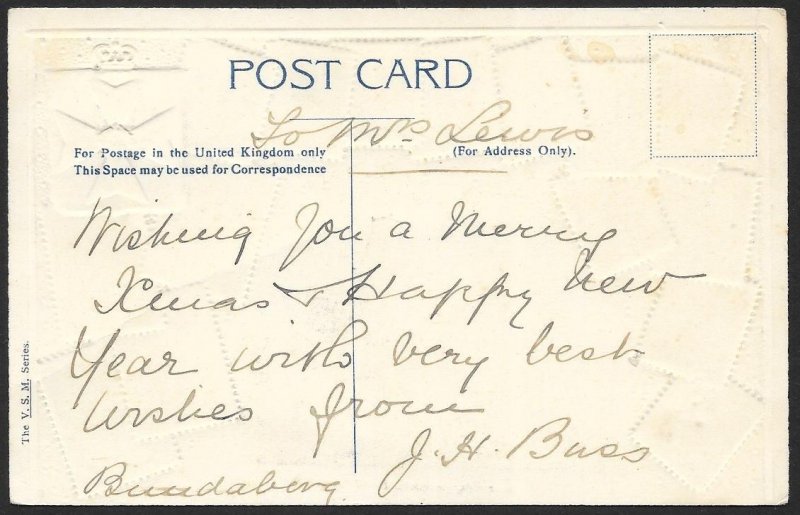 POST CARD
To Mrs Lewis
For Postage in the United Kingdom only
This Space may be used for Correspondence
(For Address Only).
Wishing you a Merry
Xmas & Happy New
Year with very best
wishes from
J. H. Buss
Bundaberg
The V. S. M. Series.